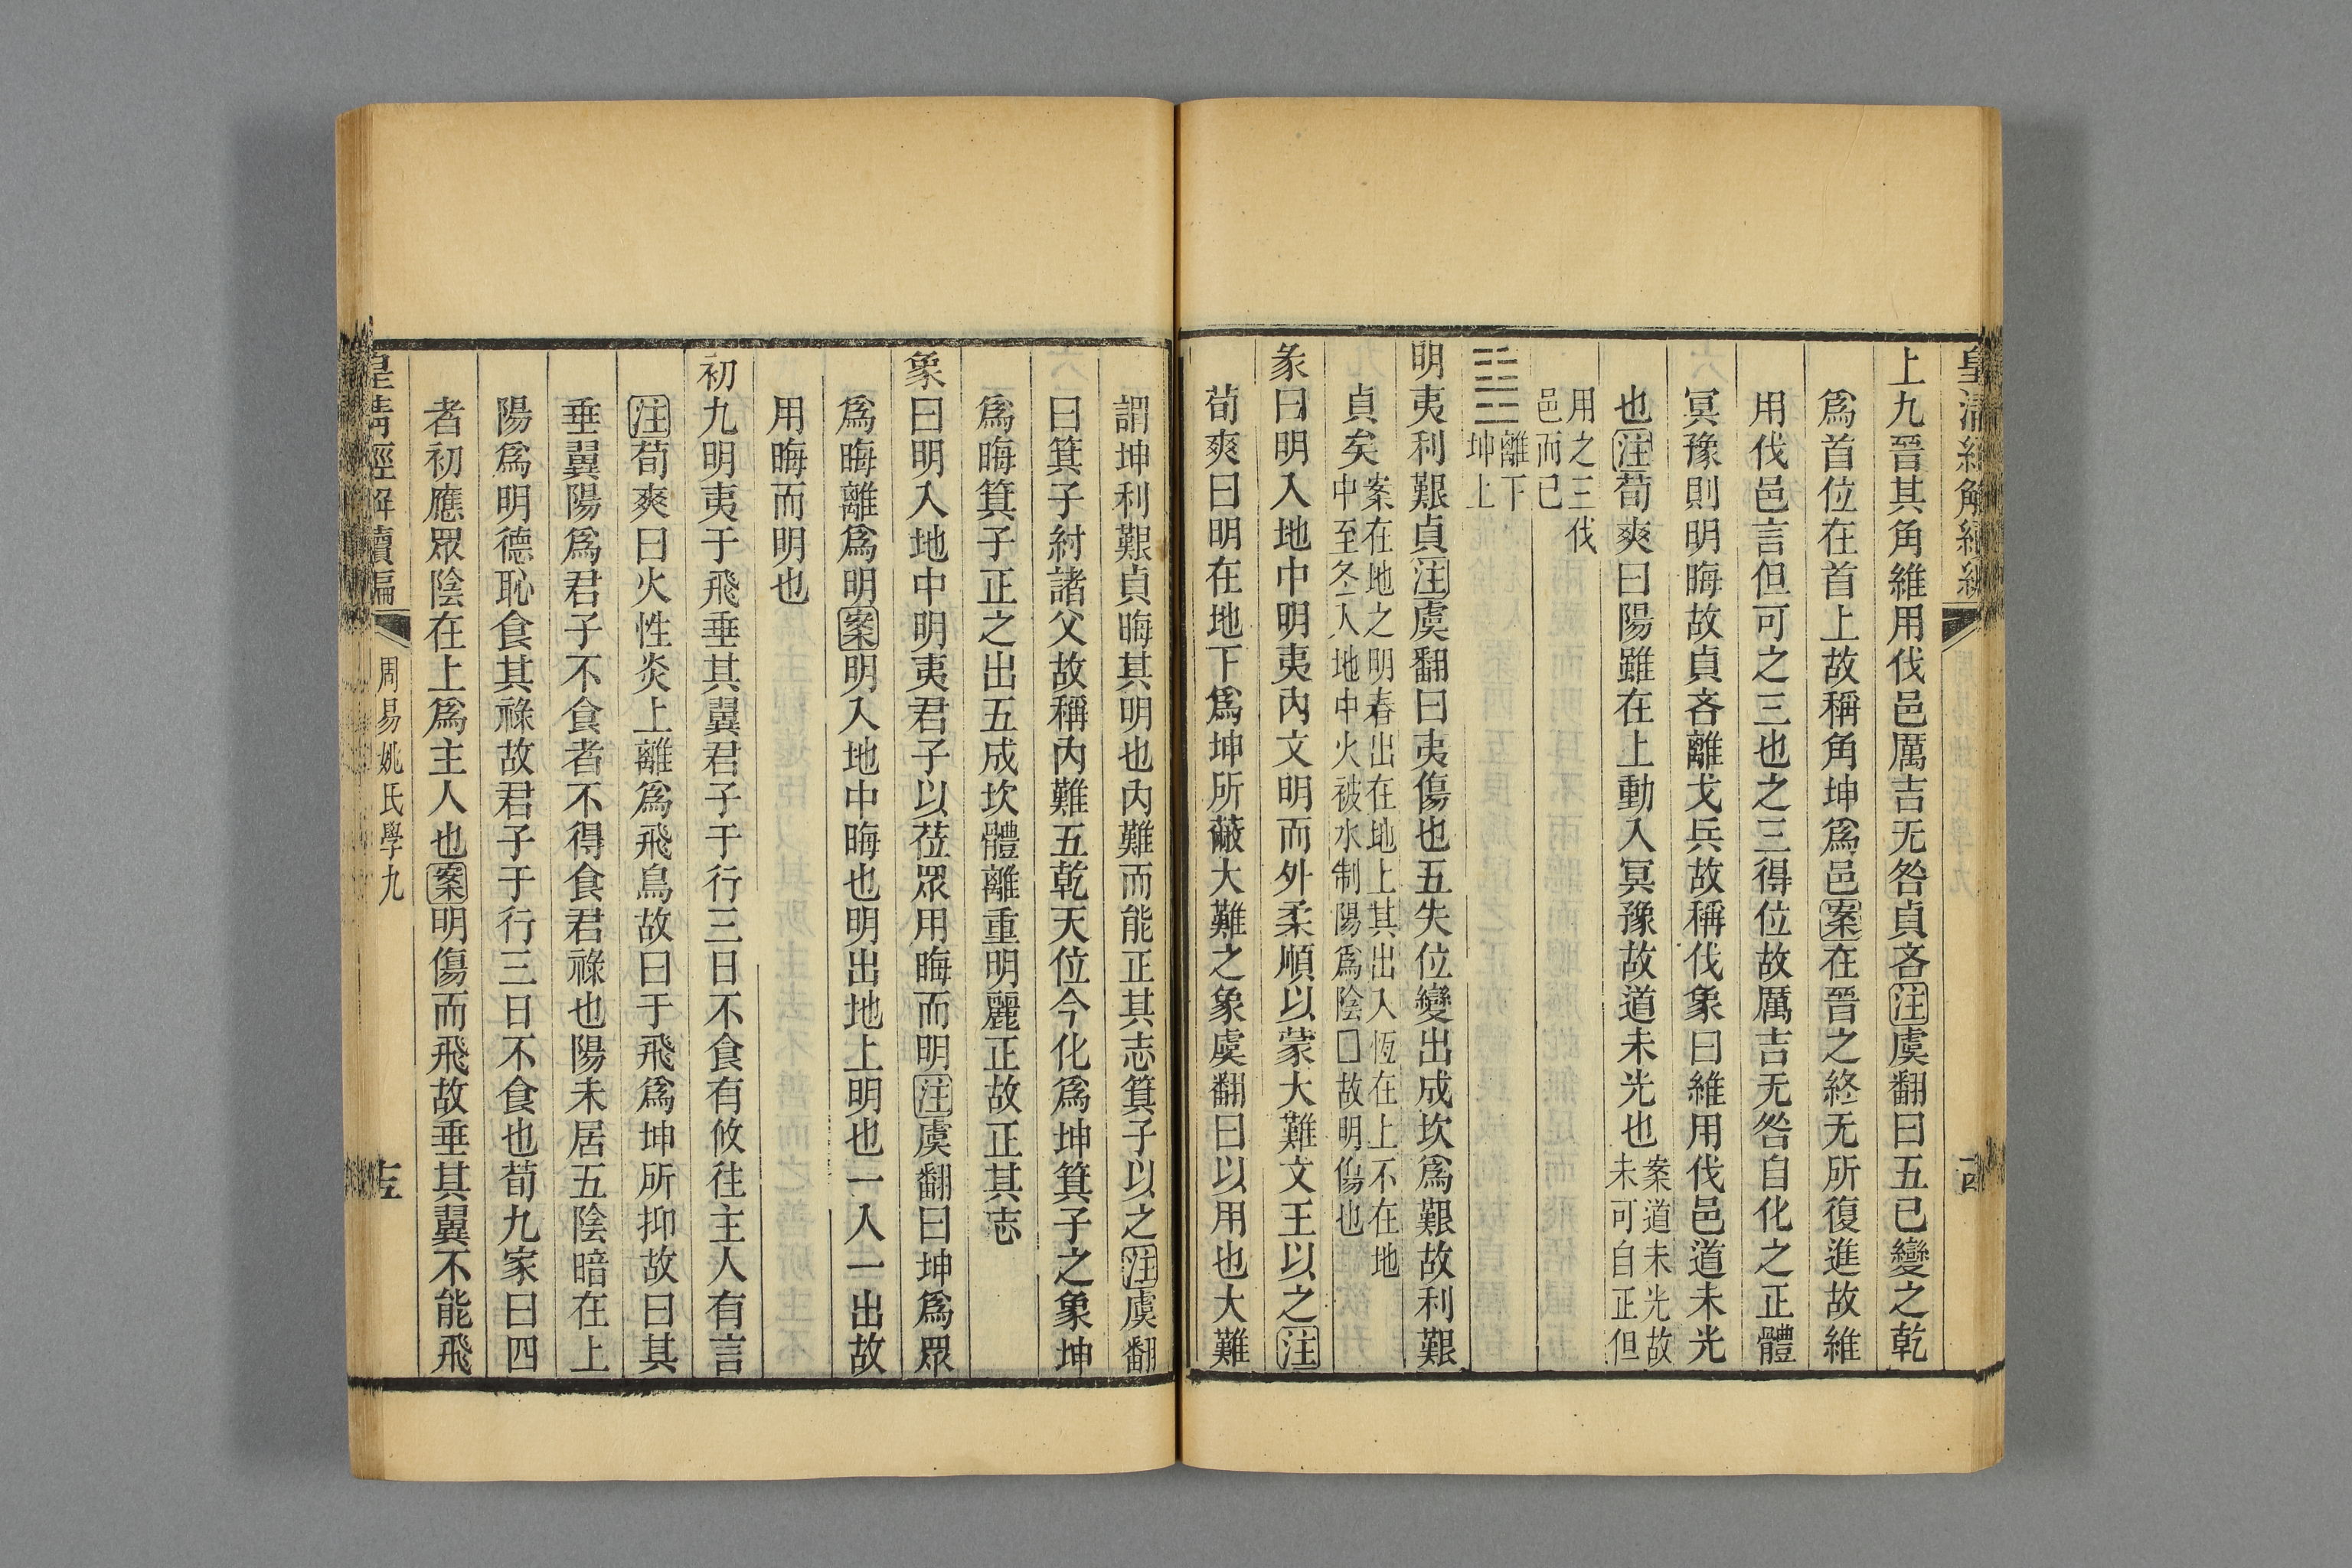 皇清經解續編
上九晉其角維用伐邑厲吉无咎貞吝注虞翻曰五已變之乾
爲首位在首上故稱角坤爲邑案在晉之終无所復進故維
用伐邑言但可之三也之三得位故厲吉无咎自化之正體
冥豫則明晦故貞吝離戈兵故稱伐象曰維用伐邑道未光
也注荀爽曰陽雖在上動入冥豫故道未光也案道未光故
未可自正但
用之三伐
邑而已
離下
坤上
明夷利艱貞注虞翻曰夷傷也五失位變出成坎爲艱故利艱
貞矣案在地之明春出在地上其出入恆在上不在地
中至冬入地中火被水制陽爲陰□故明傷也
彖曰明入地中明夷內文明而外柔順以蒙大難文王以之注
荀爽曰明在地下爲坤所蔽大難之象虞翻曰以用也大難
謂坤利艱貞晦其明也內難而能正其志箕子以之注虞翻
曰箕子紂諸父故稱內難五乾天位今化爲坤箕子之象坤
爲晦箕子正之出五成坎體離重明麗正故正其志
象曰明入地中明夷君子以莅眾用晦而明注虞翻曰坤爲眾
爲晦離爲明案明入地中晦也明出地上明也一入一出故
用晦而明也
初九明夷于飛垂其翼君子于行三日不食有攸往主人有言
注荀爽曰火性炎上離爲飛鳥故曰于飛爲坤所抑故曰其
垂翼陽爲君子不食者不得食君祿也陽未居五陰暗在上
陽爲明德恥食其祿故君子于行三日不食也荀九家曰四
者初應眾陰在上爲主人也案明傷而飛故垂其翼不能飛
皇清經解續編
周易姚氏學九